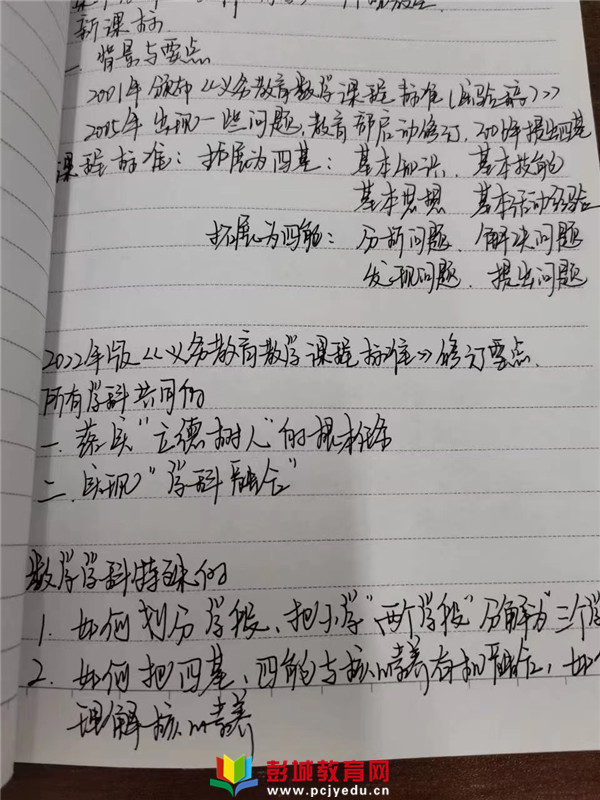 新课标
一 背景与要点
2001年颁布《义务教育数学课程标准(实验稿)》
2005年出现一些问题,教育部启动修订,2011年提出四基
课程标准:拓展为四基:基本知识、基本技能
基本思想 基本活动经验
拓展为四能:分析问题、解决问题
发现问题、提出问题
2022年版《义务教育数学课程标准》修订要点
所有学科共同的
一.落实"立德树人"的根本任务
二.实现"学科融合"
数学学科特殊的
1.如何划分学段、把小学"两个学段"分解为"三个学
2.如何把四基、四能与核心素养有机融合,如
理解核心素养
彭城教育网
www.pcjyedu.cn